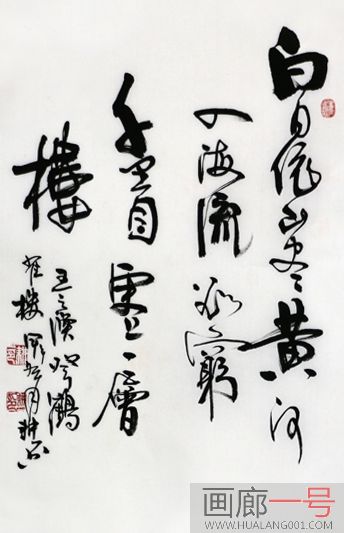 白日依山尽黄河
入海流欲窮
千里目更上一層
樓
王之渙登鸛
雀樓
画廊一号
WWW.HUALANG001.COM